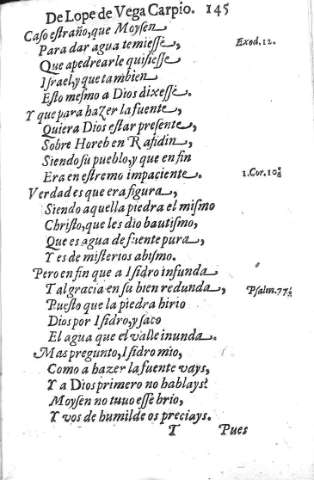 De Lope de Vega Carpio. 145
Caso estraño, que Moysen
Para dar agua temiesse, Exod. 12.
Que apedrearle quisiesse
Israel, y que tambien
Esto mesmo a Dios dixesse.
Y que para hazer la fuente,
Quiera Dios estar presente,
Sobre Horeb en Rafidin,
Siendo su pueblo, y que en fin
Era en estremo impaciente. 1. Cor. 10
Verdad es que era figura,
Siendo aquella piedra el mismo
Christo, que les dio bautismo,
Que es agua de fuente pura,
Y es de misterios abismo.
Pero en fin que a Isidro infunda
Tal gracia en su bien redunda, Psalm. 77.
Puesto que la piedra hirio
Dios por Isidro, y saco
El agua que el valle inunda.
Mas pregunto, Isidro mio,
Como a hazer la fuente vays,
Y a Dios primero no hablays?
Moysen no tuuo esse brio,
Y vos de humilde os preciays.
T Pues